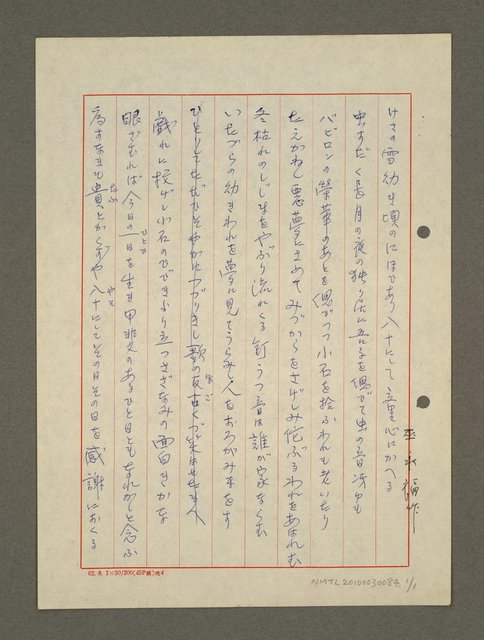 けさの雪幼き頃のにほひあり八十にして童心にかへる
巫永福作
虫すだく長月の夜の独り居に吾子を偲びて虫の音冴ゆも
バビロンの榮華のあとを偲びつつ小石を拾ふわれも老いたり
たえかねし悪夢さめてみづからをさげしみ侘ぶるわれをあはれむ
冬枯れのしじまをやぶり流れくる釘うつ音は誰が家をくむ
いたづらの幼きわれを夢に見てうらみし人をおろがみまをす
ひとり ひそやかにつづりきし歌の反古くづ笑はせたまへ
戯れに投げし小石のひびきより立つさざなみの面白きかな
眼ざむれば今日の一日を生き甲斐のあるひと日ともなれかしと念ふ
為すなきも貴とからずや八十にしてその日その日を感謝におくる
62.8.1×50/200(45P横)地4
NMTL20100030084, 1/1